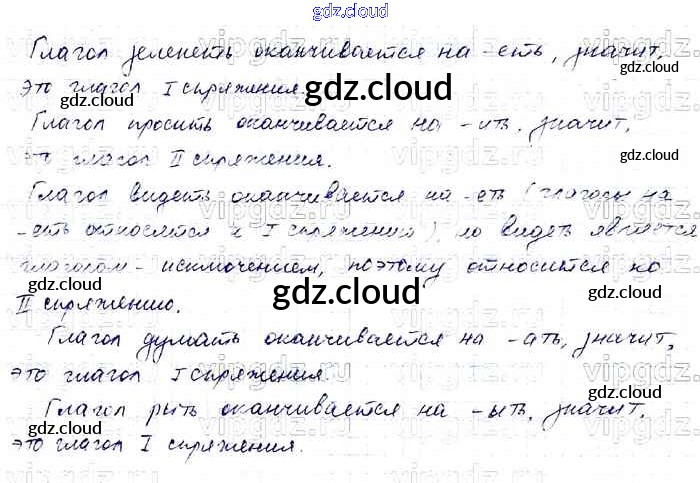 gdz.cloud
Глагол зеленеть оканчивается на -еть, значит,
это глагол I спряжения.
Глагол просить оканчивается на -ить, значит,
это глагол II спряжения.
Глагол видеть оканчивается на -еть (глаголы на
-еть относятся к I спряжению), но видеть является
глаголом - исключением, поэтому относится ко
II спряжению.
Глагол думать оканчивается на -ать, значит,
это глагол I спряжения.
Глагол рыть оканчивается на -ыть, значит,
это глагол I спряжения.